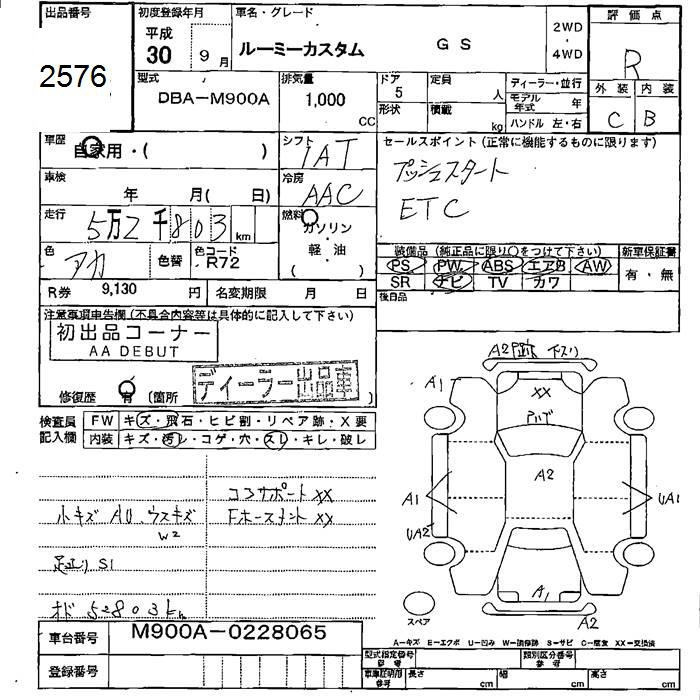 出品番号
2576
初度登録年月
平成
30 9月
車名・グレード
ルーミーカスタム GS
2WD
4WD
評価点
R
外装 内装
C B
型式
DBA-M900A
排気量
1,000
CC
ドア
5
形状
定員
人
積載
kg
ディーラー・並行
モデル年式 年
ハンドル 左・右
車歴
自家用・( )
シフト
IAT
セールスポイント(正常に機能するものに限ります)
プッシュスタート
ETC
車検
年 月( 日)
冷房
AAC
走行
5万2千803km
燃料
ガソリン
・
軽・油
( )
色
アカ
色替
色コード
R72
装備品(純正品に限り○をつけて下さい)
新車保証書
PS PW ABS エアB AW
SR ナビ TV カワ
有・無
R券 9,130 円
名変期限 月 日
後日品
注意事項申告欄(不具合内容等は具体的に記入して下さい)
初出品コーナー
AA DEBUT
ディーラー出品車
修復歴 有 (箇所 )
検査員
記入欄
FW キズ・飛石・ヒビ割・リペア跡・X要
内装 キズ・汚レ・コゲ・穴・スレ・キレ・破レ
コアサポートXX
小キズ AU、ウスキズ
W2
S1
オド 52803km
A2 跡 下スリ
A1
XX
A2
A1
UA2
UA1
A1
A2
スペア
車台番号 M900A-0228065
登録番号
A-キズ E-エクボ U-凹み W-補修跡 S-サビ C-腐食 XX-交換済
型式指定番号
参考
類別区分番号
参考
車庫証明用
参考
長さ cm
幅 cm
高さ cm